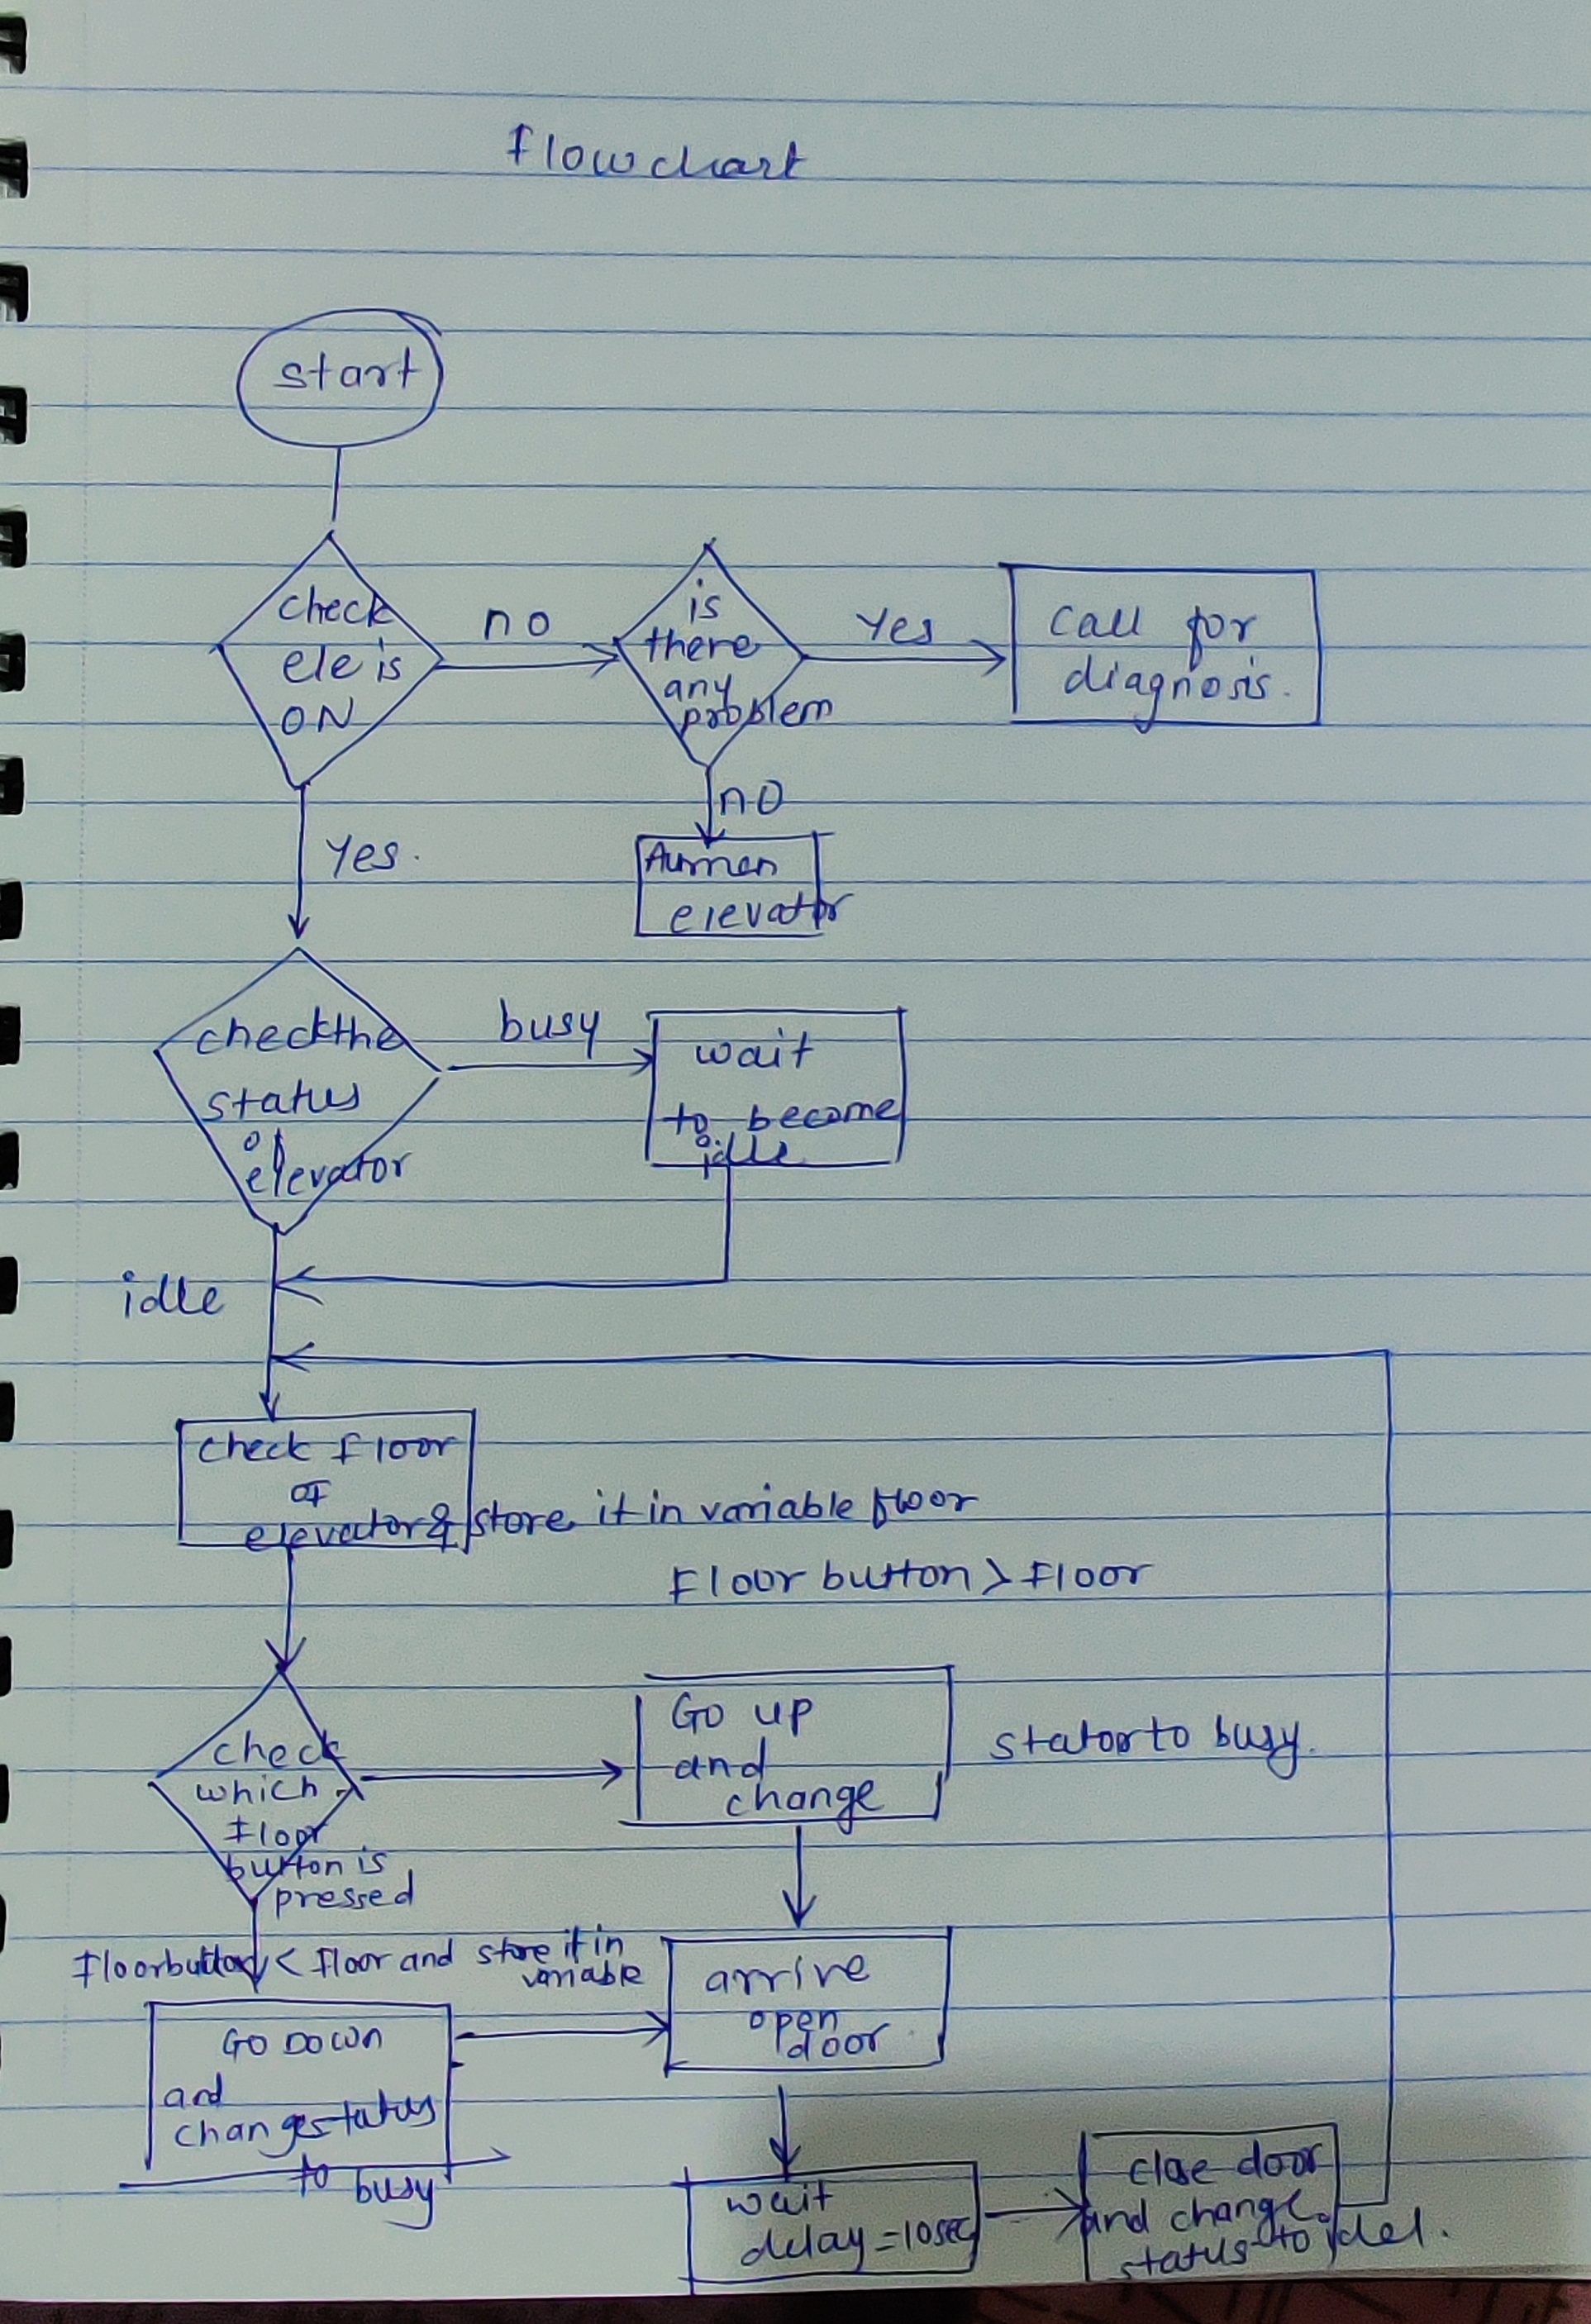 flowchart
start
check
ele is
ON
no
is
there
any
problem
Yes
call for
diagnosis.
no
elevator
Yes.
check the
status
of
elevator
busy
wait
to become
idle
idle
check floor
of
elevator & store it in variable floor
Floor button > floor
check
which
floor
button is
pressed
Go up
and
change
to busy.
Floorbutton < floor and store it in
variable
GO DOWN
and
change status
to busy
arrive
open
door
wait
delay = 10sec
close door
and change
status to idel.